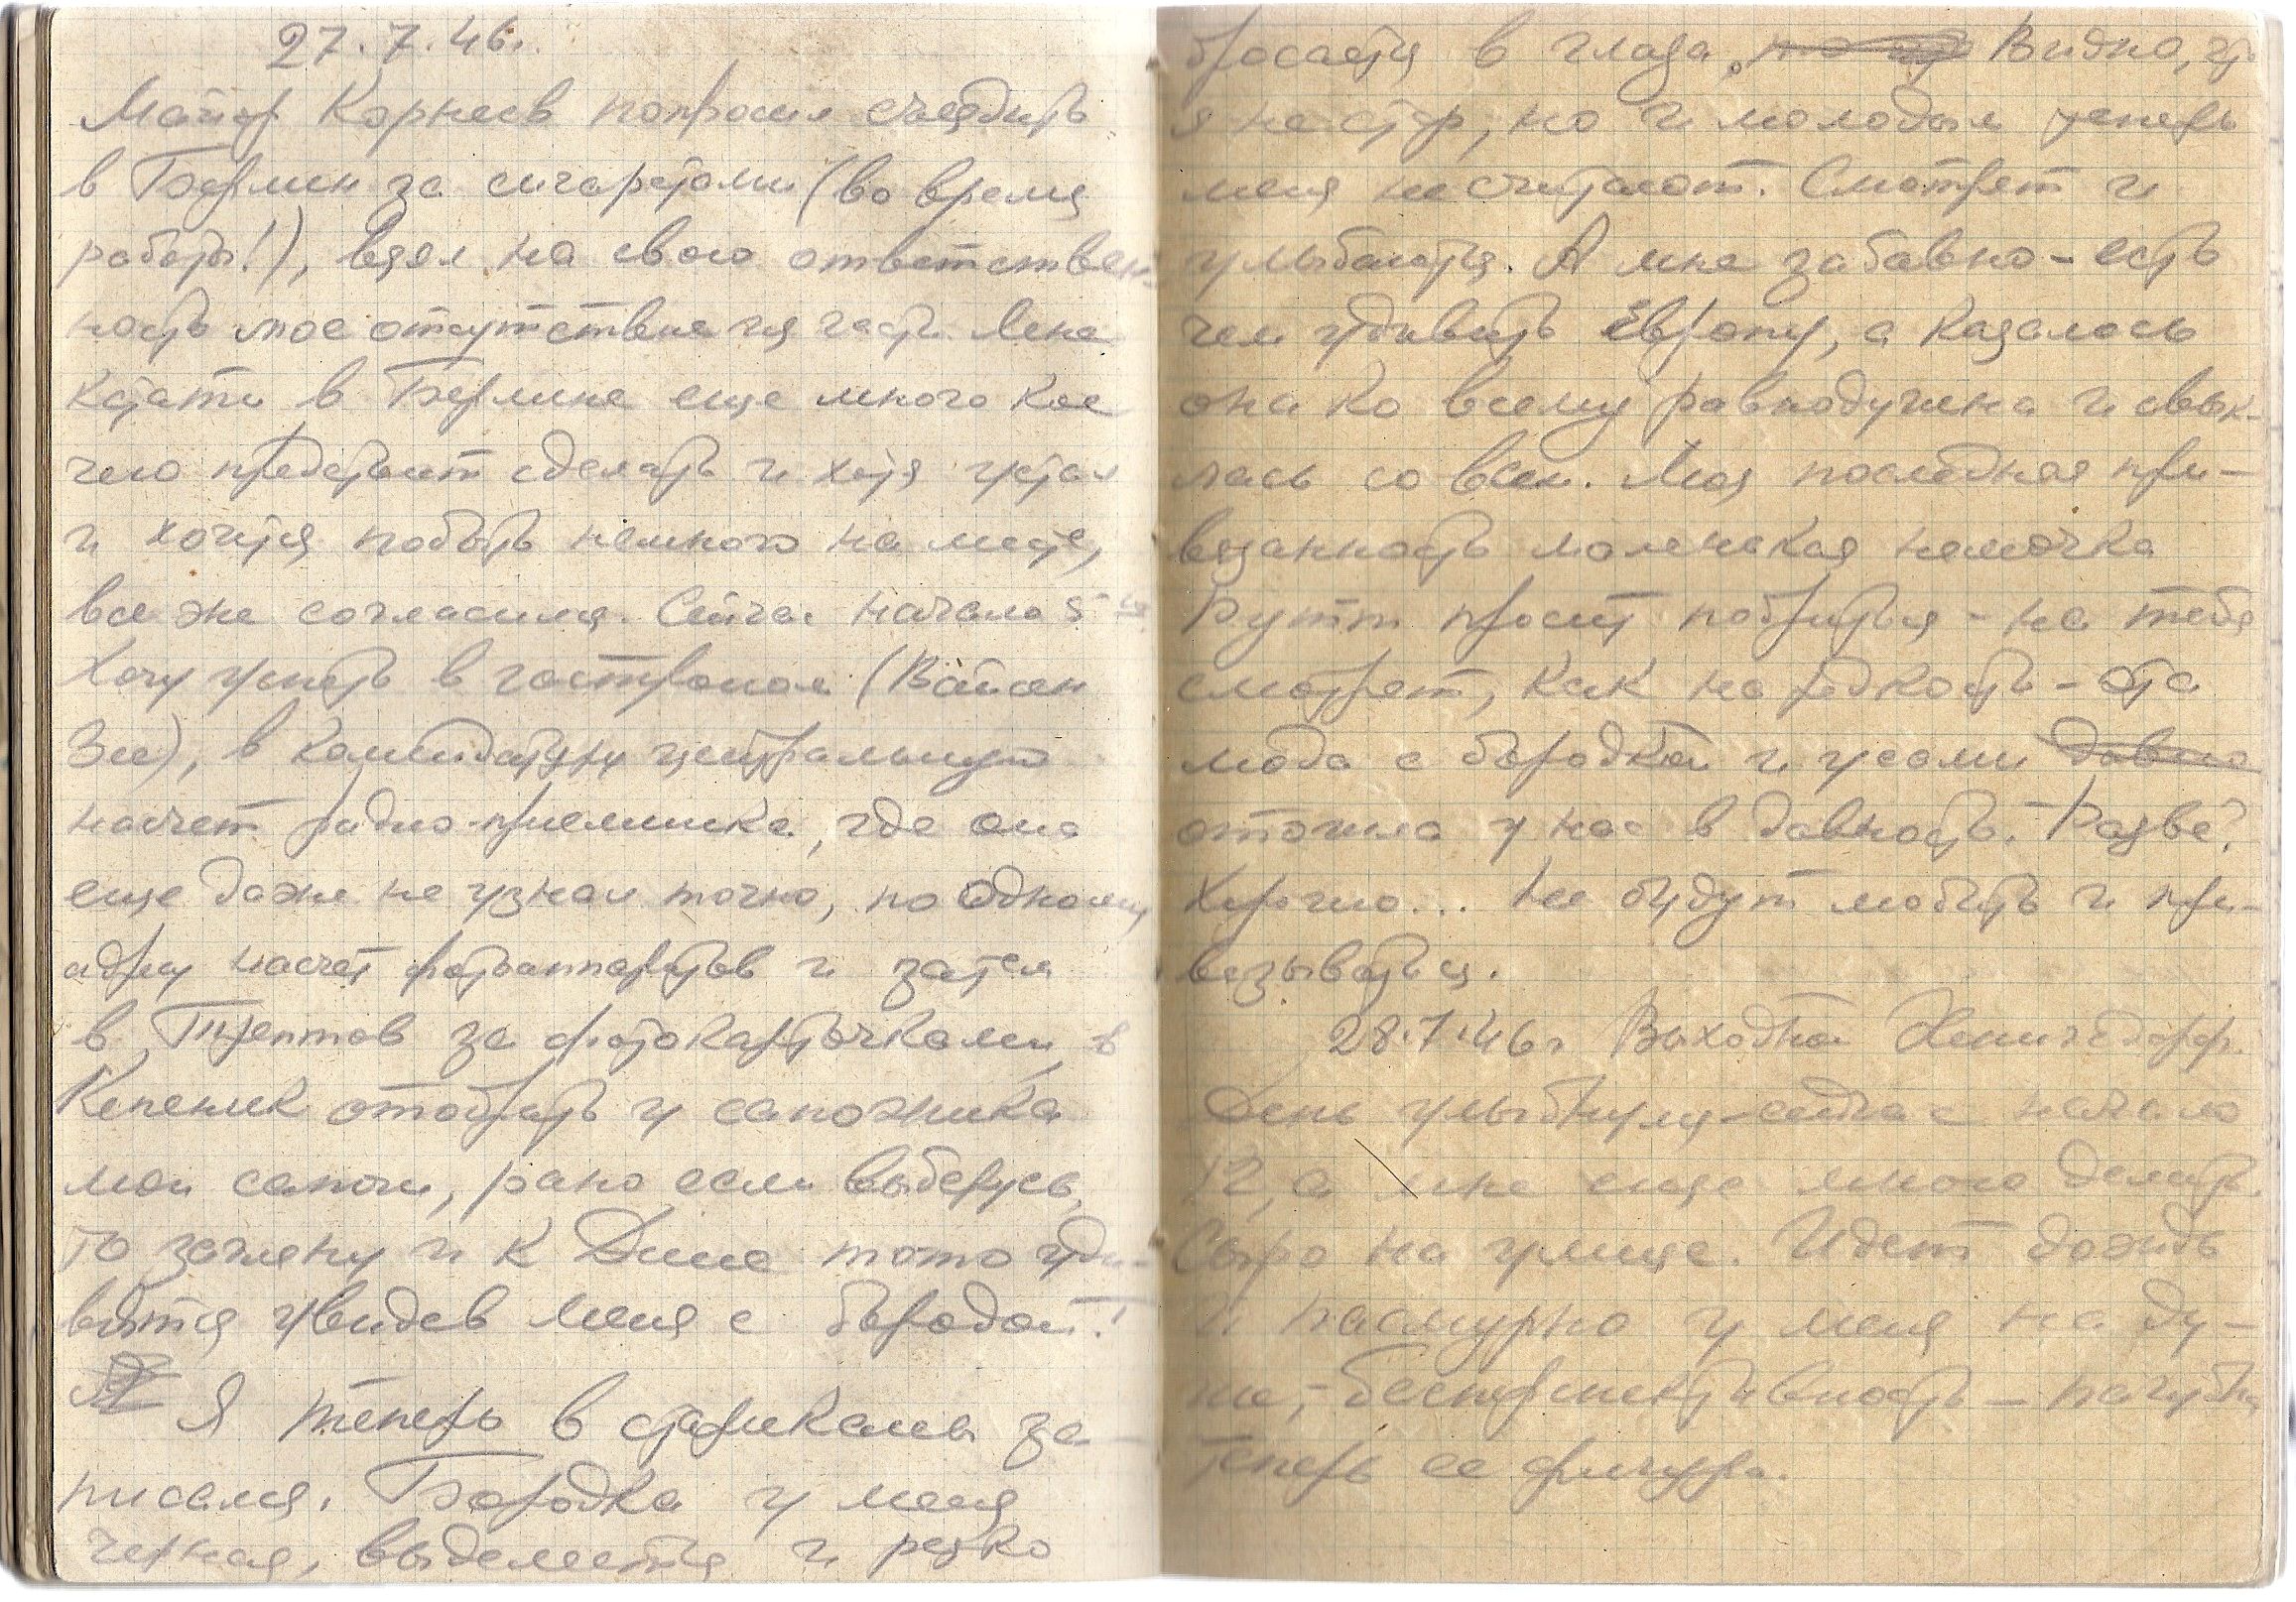 27.7.46.
Майор Корнеев попросил съездить
в Берлин за сигаретами (во время
работы!), взял на свою ответствен
ность мое отсутствие из части. Мне
кстати в Берлине еще много кое
чего предстоит сделать и хотя устал
и хочется побыть немного на месте,
все же согласился. Сейчас начало 5
Хочу успеть в гастроном (Вайсен
Зее), в комендатуру центральную
насчет радио-приемника, где она
еще даже не узнал точно, по одному
адресу насчет фотоаппаратов и затем
в Трептов за фотокарточками, в
Кепеник отобрать у сапожника
мои сапоги, рано если выберусь,
то загляну и к Дине то-то уди-
вится увидев меня с бородой!
Я теперь в старикашки за-
писался. Бородка у меня
черная, выделяется и резко
бросается в глаза. Видно, что
я не стар, но и молодым теперь
меня не считают. Смотрят и
улыбаются. А мне забавно - есть
чем удивить Европу, а казалось
она ко всему равнодушна и свык-
лась со всем. Моя последняя при-
вязанность маленькая немочка
Рутт просит побриться - на тебя
смотрят, как на редкость - эта
мода с бородкой и усами давно
отошла у нас в давность. Разве?
Хорошо... Не будут любить и при-
вязываться.
28.7.46г Выходной Хенигсдорф.
День улыбнулся - сейчас начало
12, а мне еще много делать.
Сыро на улице. Идет дождь
и пасмурно у меня на ду-
ше, - бесперспективность - пагубна
теперь ее фигура.